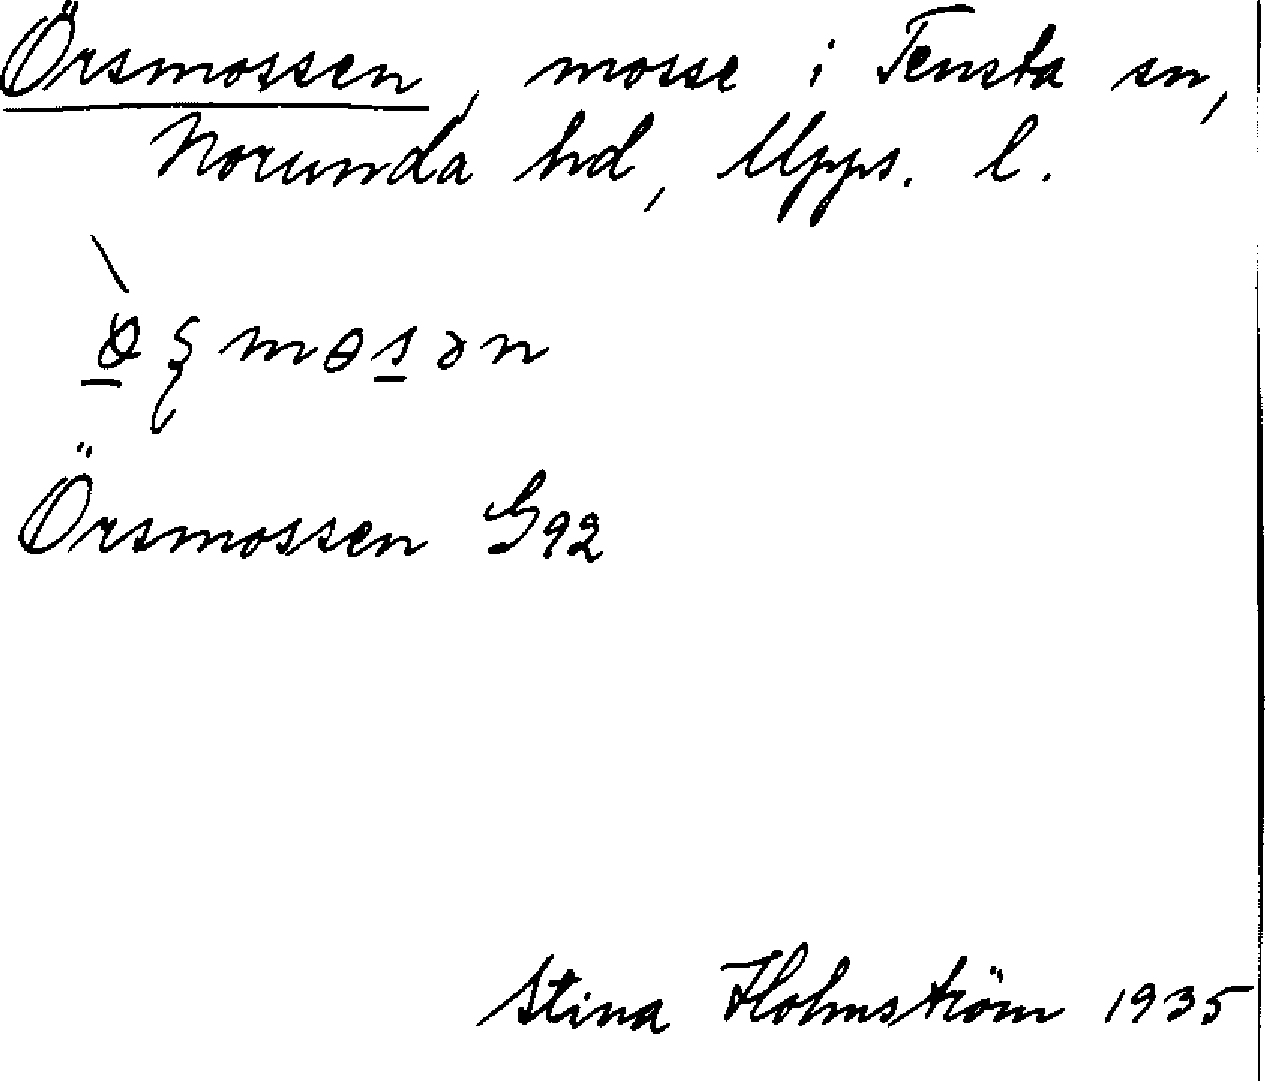 Örsmossen, mosse i Tensta sn,
Norunda hd, Upps. l.
Örsmossen G92
Stina Holmström 1935